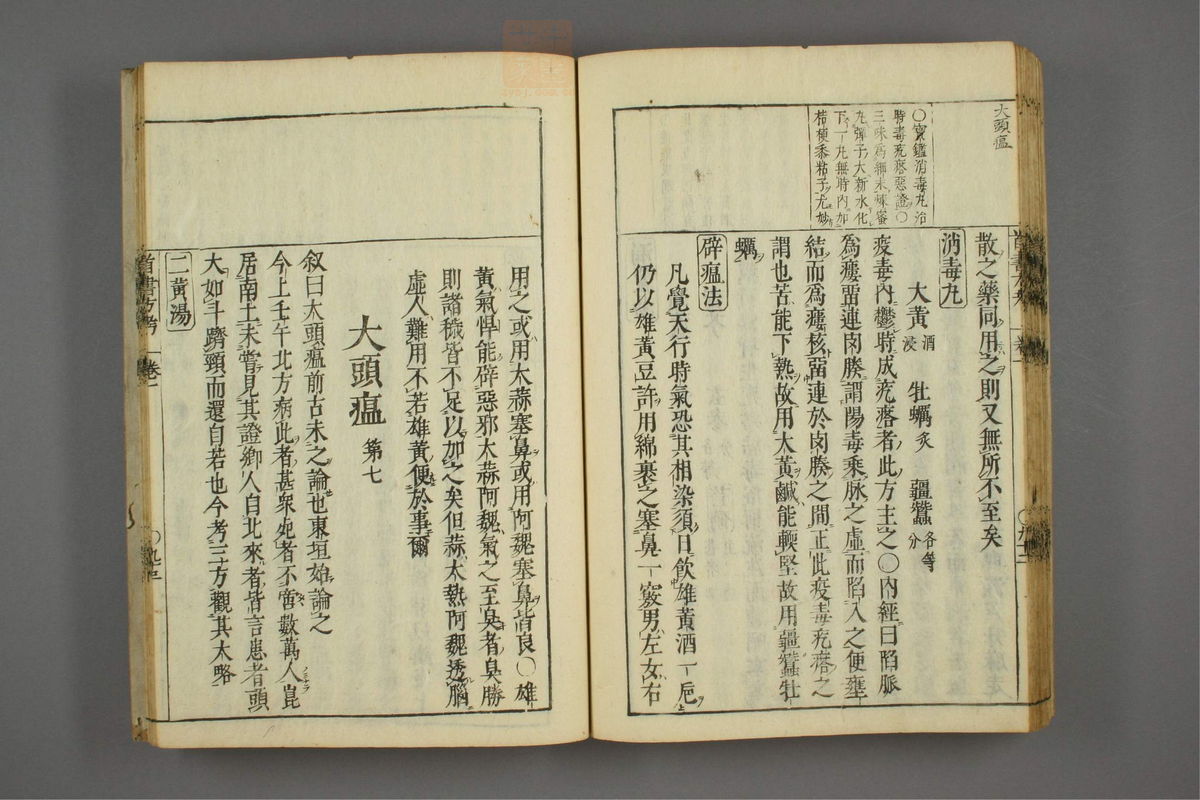 大頭瘟
○寳鑑消毒丸治
時毒疙瘩惡證○
三味爲細末煉蜜
丸彈子大新水化
下一丸無時内加
桔梗黍粘子尤妙
散之藥同用之則又無所不至矣
消毒丸
大黄 酒浸 牡蠣 炙 殭蠶 各等分
疫毒内鬱時成疙瘩者此方主之○内經曰陷脈
爲瘻畱連肉腠謂陽毒乘脉之虚而陷入之便壅
結而爲瘻核畱連於肉腠之間正此疫毒疙瘩之
謂也苦能下熱故用大黄鹹能輭堅故用殭蠶牡
蠣
辟瘟法
凡覺天行時氣恐其相染須日飲雄黄酒一巵上
仍以雄黄豆許用綿裹之塞鼻一竅男左女右
用之或用大蒜塞鼻或用阿魏塞鼻皆良○雄
黄氣悍能辟惡邪大蒜阿魏氣之至臭者臭勝
則諸穢皆不足以加之矣但蒜太熱阿魏透腦
虚人難用不若雄黄便於事爾
大頭瘟 第七
叙曰大頭瘟前古未之論也東垣始論之
今上壬午北方病此者甚衆死者不啻數萬人崑
居南土未嘗見其證鄉人自北來者皆言患者頭
大如斗躋頸而還自若也今考三方觀其大略
二黄湯
首書方考
卷二